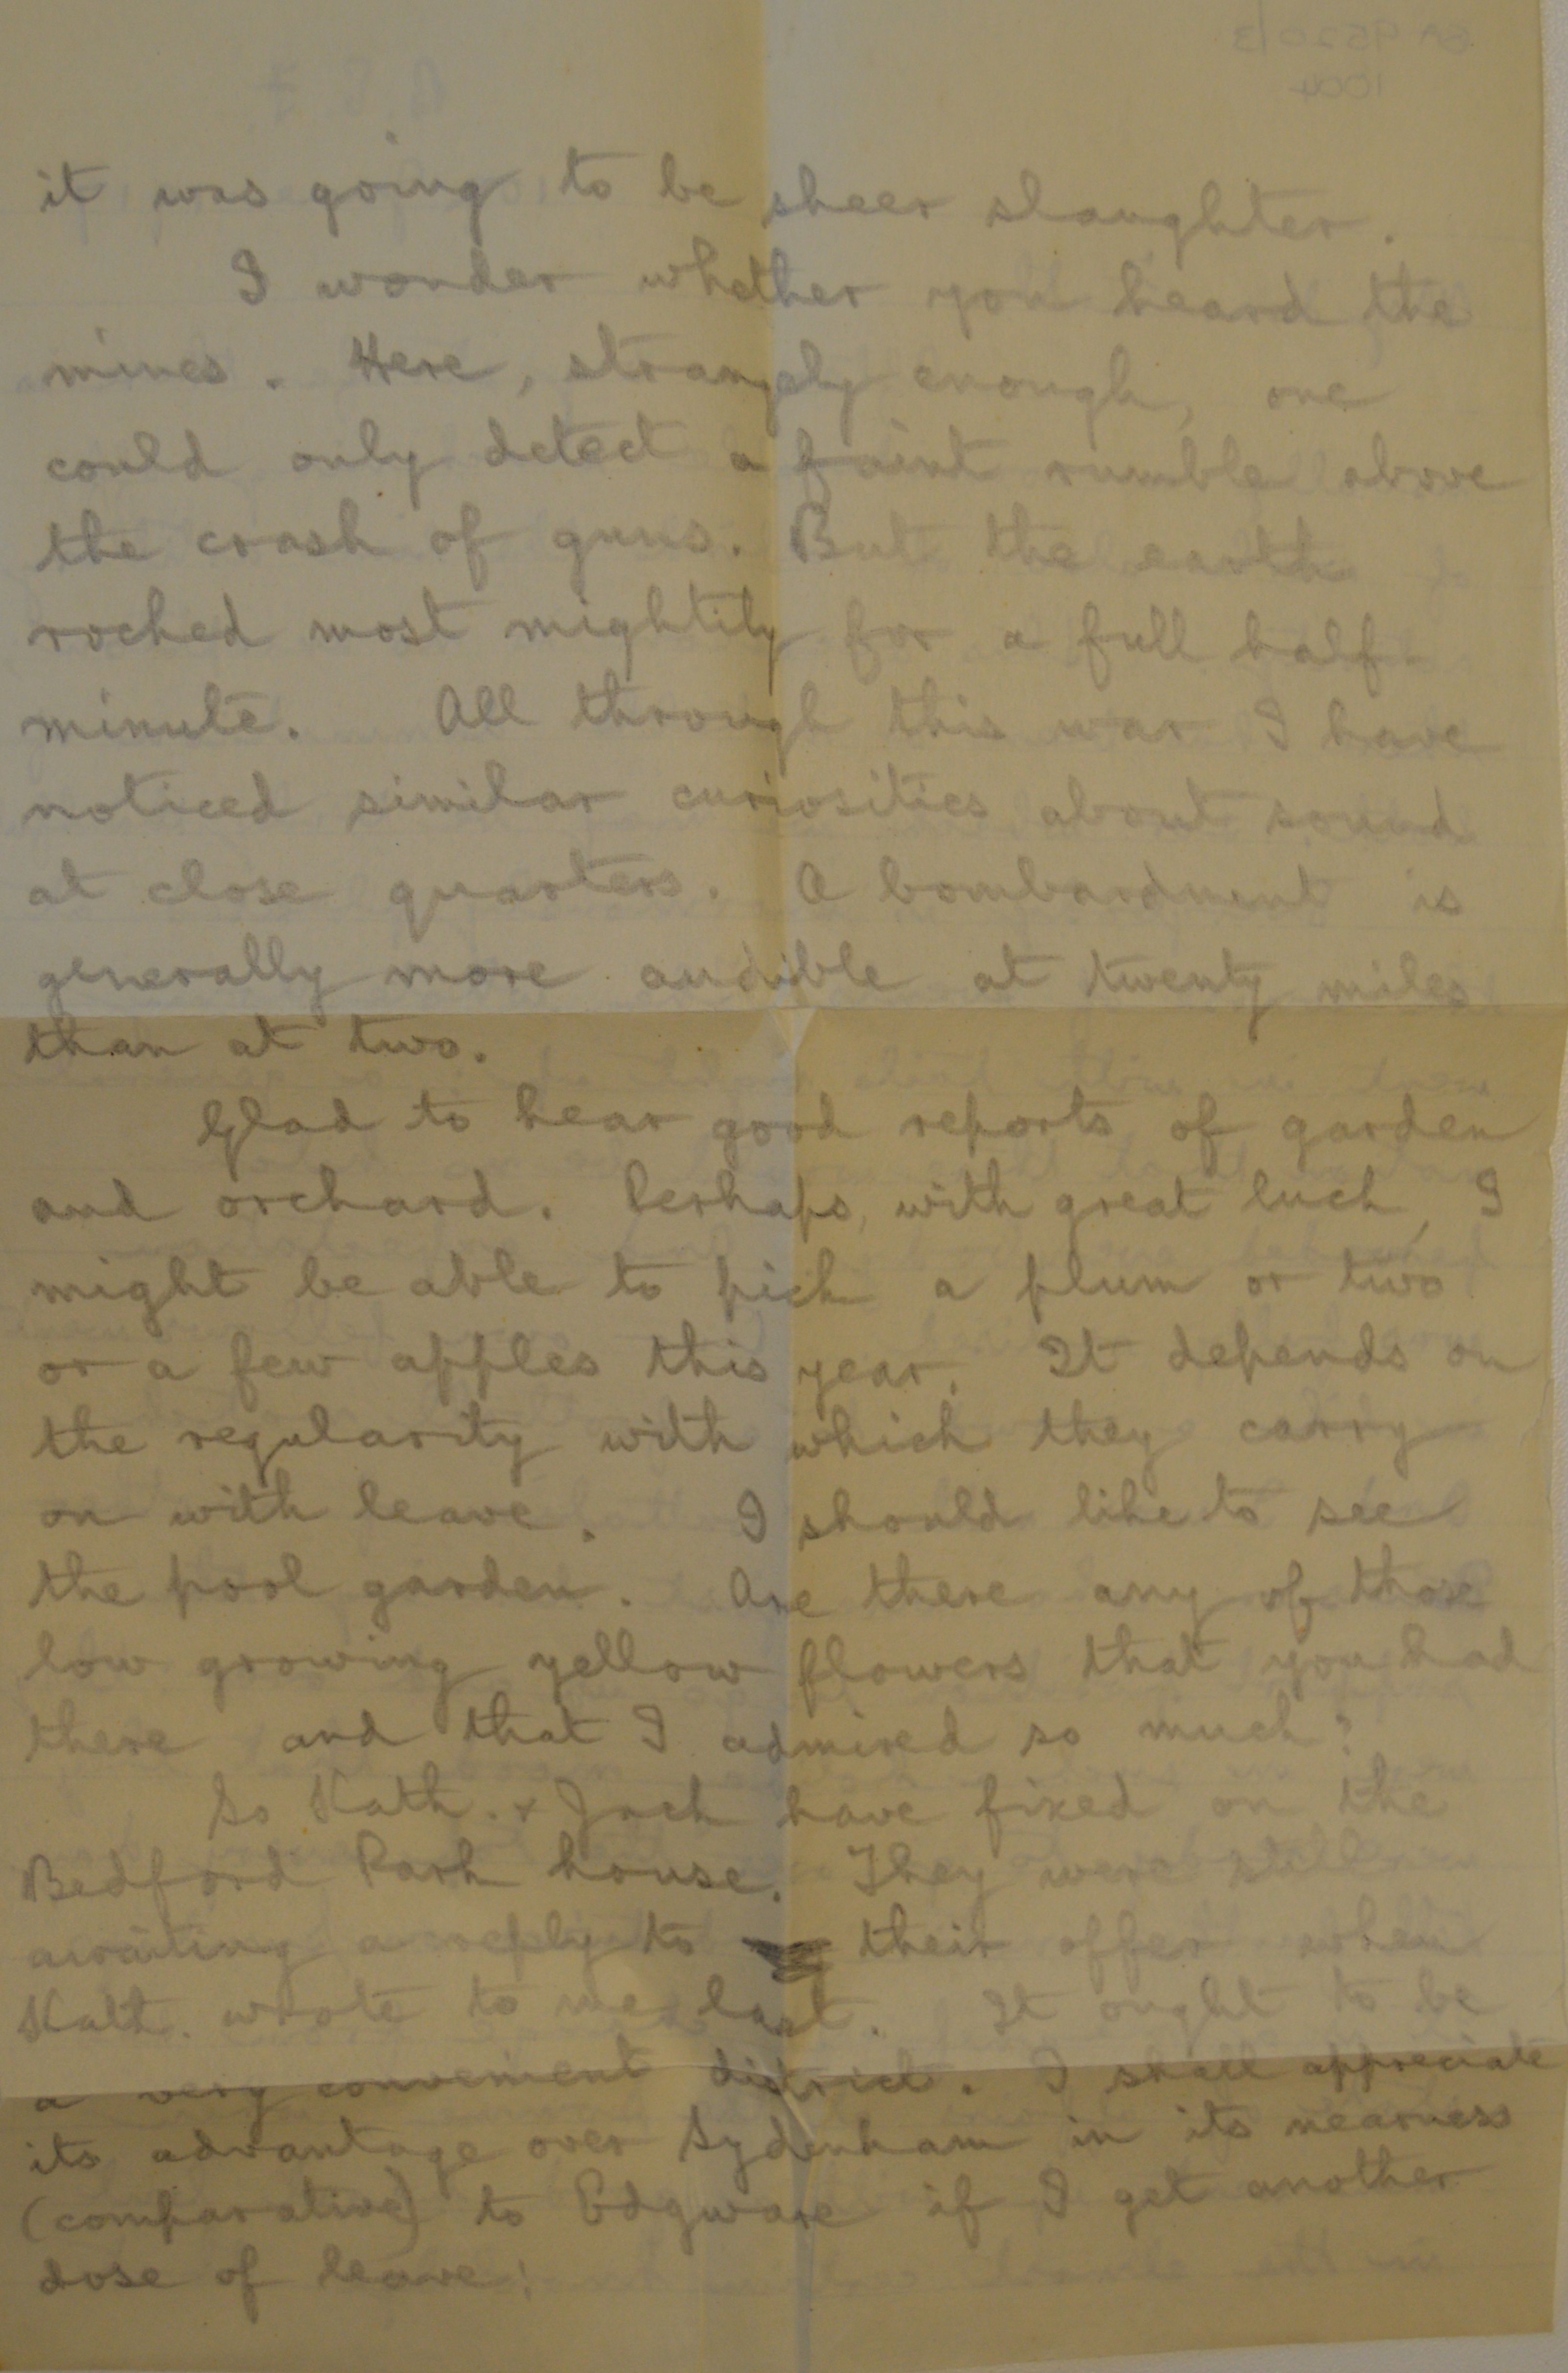 it was going to be sheer slaughter.
I wonder whether you heard the
mines. Here, strangely enough, one
could only detect a faint rumble above
the crash of guns. But the earth
rocked most mightily for a full half-
minute. All through this war I have
noticed similar curiosities about sound
at close quarters. A bombardment is
generally more audible at twenty miles
than at two.
Glad to hear good reports of garden
and orchard. Perhaps, with great luck, I
might be able to pick a plum or two
or a few apples this year. It depends on
the regularity with which they carry
on with leave. I should like to see
the pool garden. Are there any of those
low growing yellow flowers that you had
there and that I admired so much?
So Kath. & Jack have fixed on the
Bedford Park house. They were still
awaiting a reply to their offer when
Kath. wrote to me last. It ought to be
a very convenient district. I shall appreciate
its advantage over Sydenham in its nearness
(comparative) to Edgware if I get another
dose of leave!